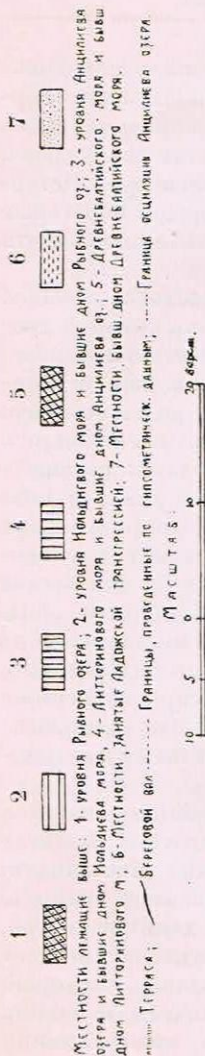 1 2 3 4 5 6 7
Местности лежащие выше: 1- уровня Рыбного озера; 2- уровня Иольдиевого моря и бывшие дном Рыбного оз.; 3- уровня Анцилиева
озера и бывшие дном Иольдиева моря, 4- Литторинового моря и бывшие дном Анцилиева оз.; 5- Древнебалтийского моря и бывш.
дном Литторинового м; 6- Местности, занятые Ладожской трансгрессией; 7- Местности, бывш. дном Древнебалтийского моря.
Терраса; Береговой вал Границы, проведенные по гипсометрическ. данным; Граница осцилляции Анцилиева озера.
Масштаб:
10 5 0 10 20 верст.